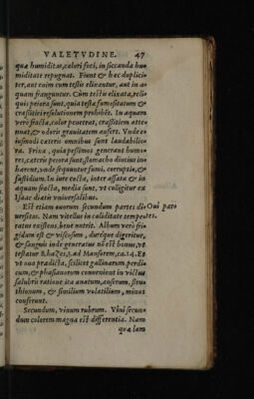 VALETVDINE. 47
quæ humiditas, calori foci, in siccanda hu-
miditate repugnat. Fiunt & hæc duplici-
ter, aut enim cum testis elixantur, aut in a-
quam franguntur. Cum testis elixata, reli-
quis peiora sunt, quia testæ fumositatum &
crassitiei resolutionem prohibet. In aquam
vero fracta, calor penetrat, crassitiem atte-
nuat, & odoris grauitatem aufert. Vnde e-
iusmodi cæteris omnibus sunt laudabilio-
ra. Frixa, quia pessimos generant humo-
res, cæteris peiora sunt, stomacho diutius in-
hærent, vnde sequuntur fumi, corruptio, &
fastidium. In iure cocta, inter assata & in
aquam fracta, media sunt, vt colligitur ex
Isaac diætis vniuersalibus.
Est etiam ouorum secundum partes di-
uersitas. Nam vitellus in caliditate tempe-
ratus existens, bene nutrit. Album vero fri-
gidum est & viscosum, duréque digeritur,
& sanguis inde generatus nō est bonus, vt
testatur Rhazes, 3. ad Mansorem, ca. 14. Et
vt oua prædicta, scilicet gallinarum perdi-
cum, & phasianorum conueniunt in victus
salubris ratione ita anatum, anserum, stru-
thionum, & similium volatilium, minus
conferunt.
Secundum, vinum rubrum. Vini secun-
dum colorem magna est differentia. Nam
quædam